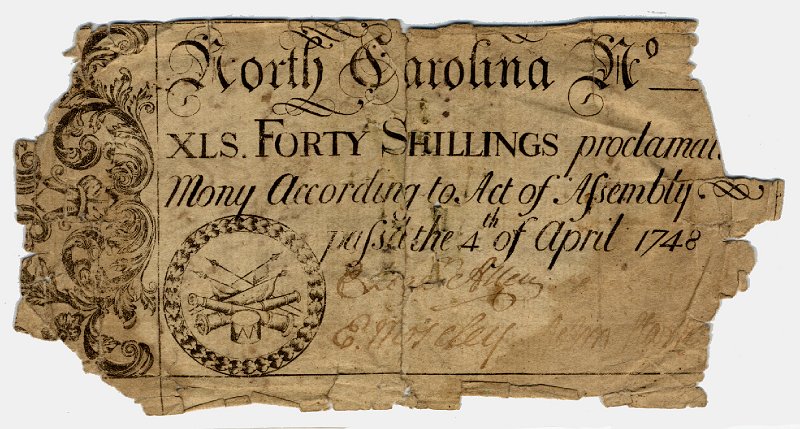 North Carolina Nº
XLS. FORTY SHILLINGS proclamat
Mony According to Act of Aſſembly
paſs'd the 4th of April 1748
E. Moseley